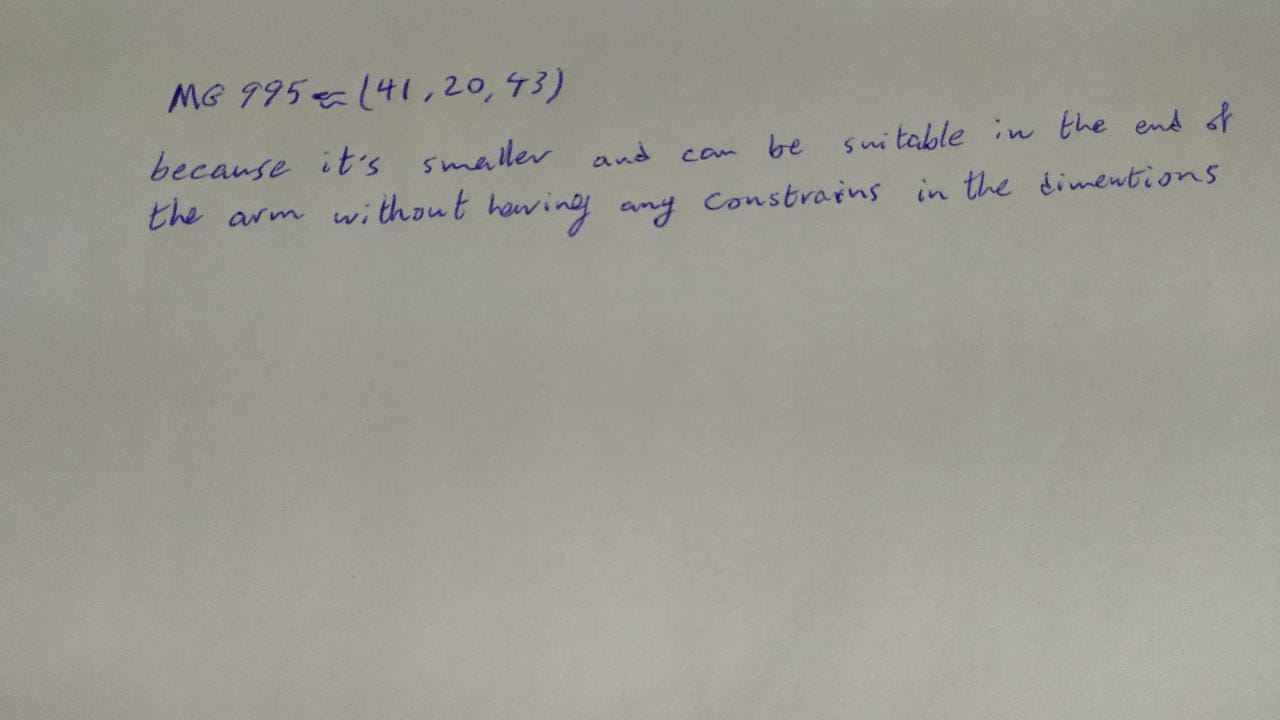 MG 995 ≈ (41, 20, 43)
because it's smaller and can be suitable in the end of
the arm without having any constrains in the dimentions